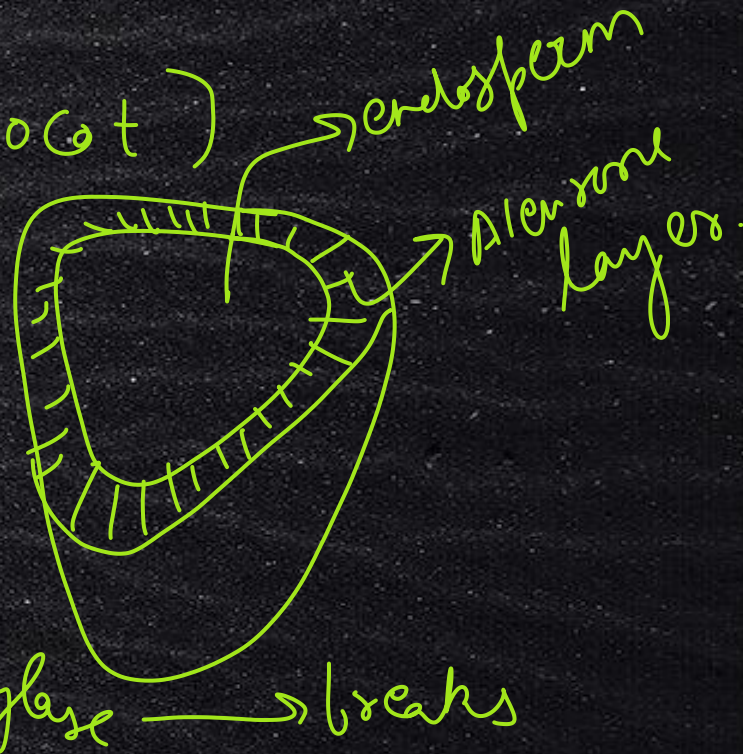 ocot)
→ endosperm
→ Aleurone
layer
ylase → breaks